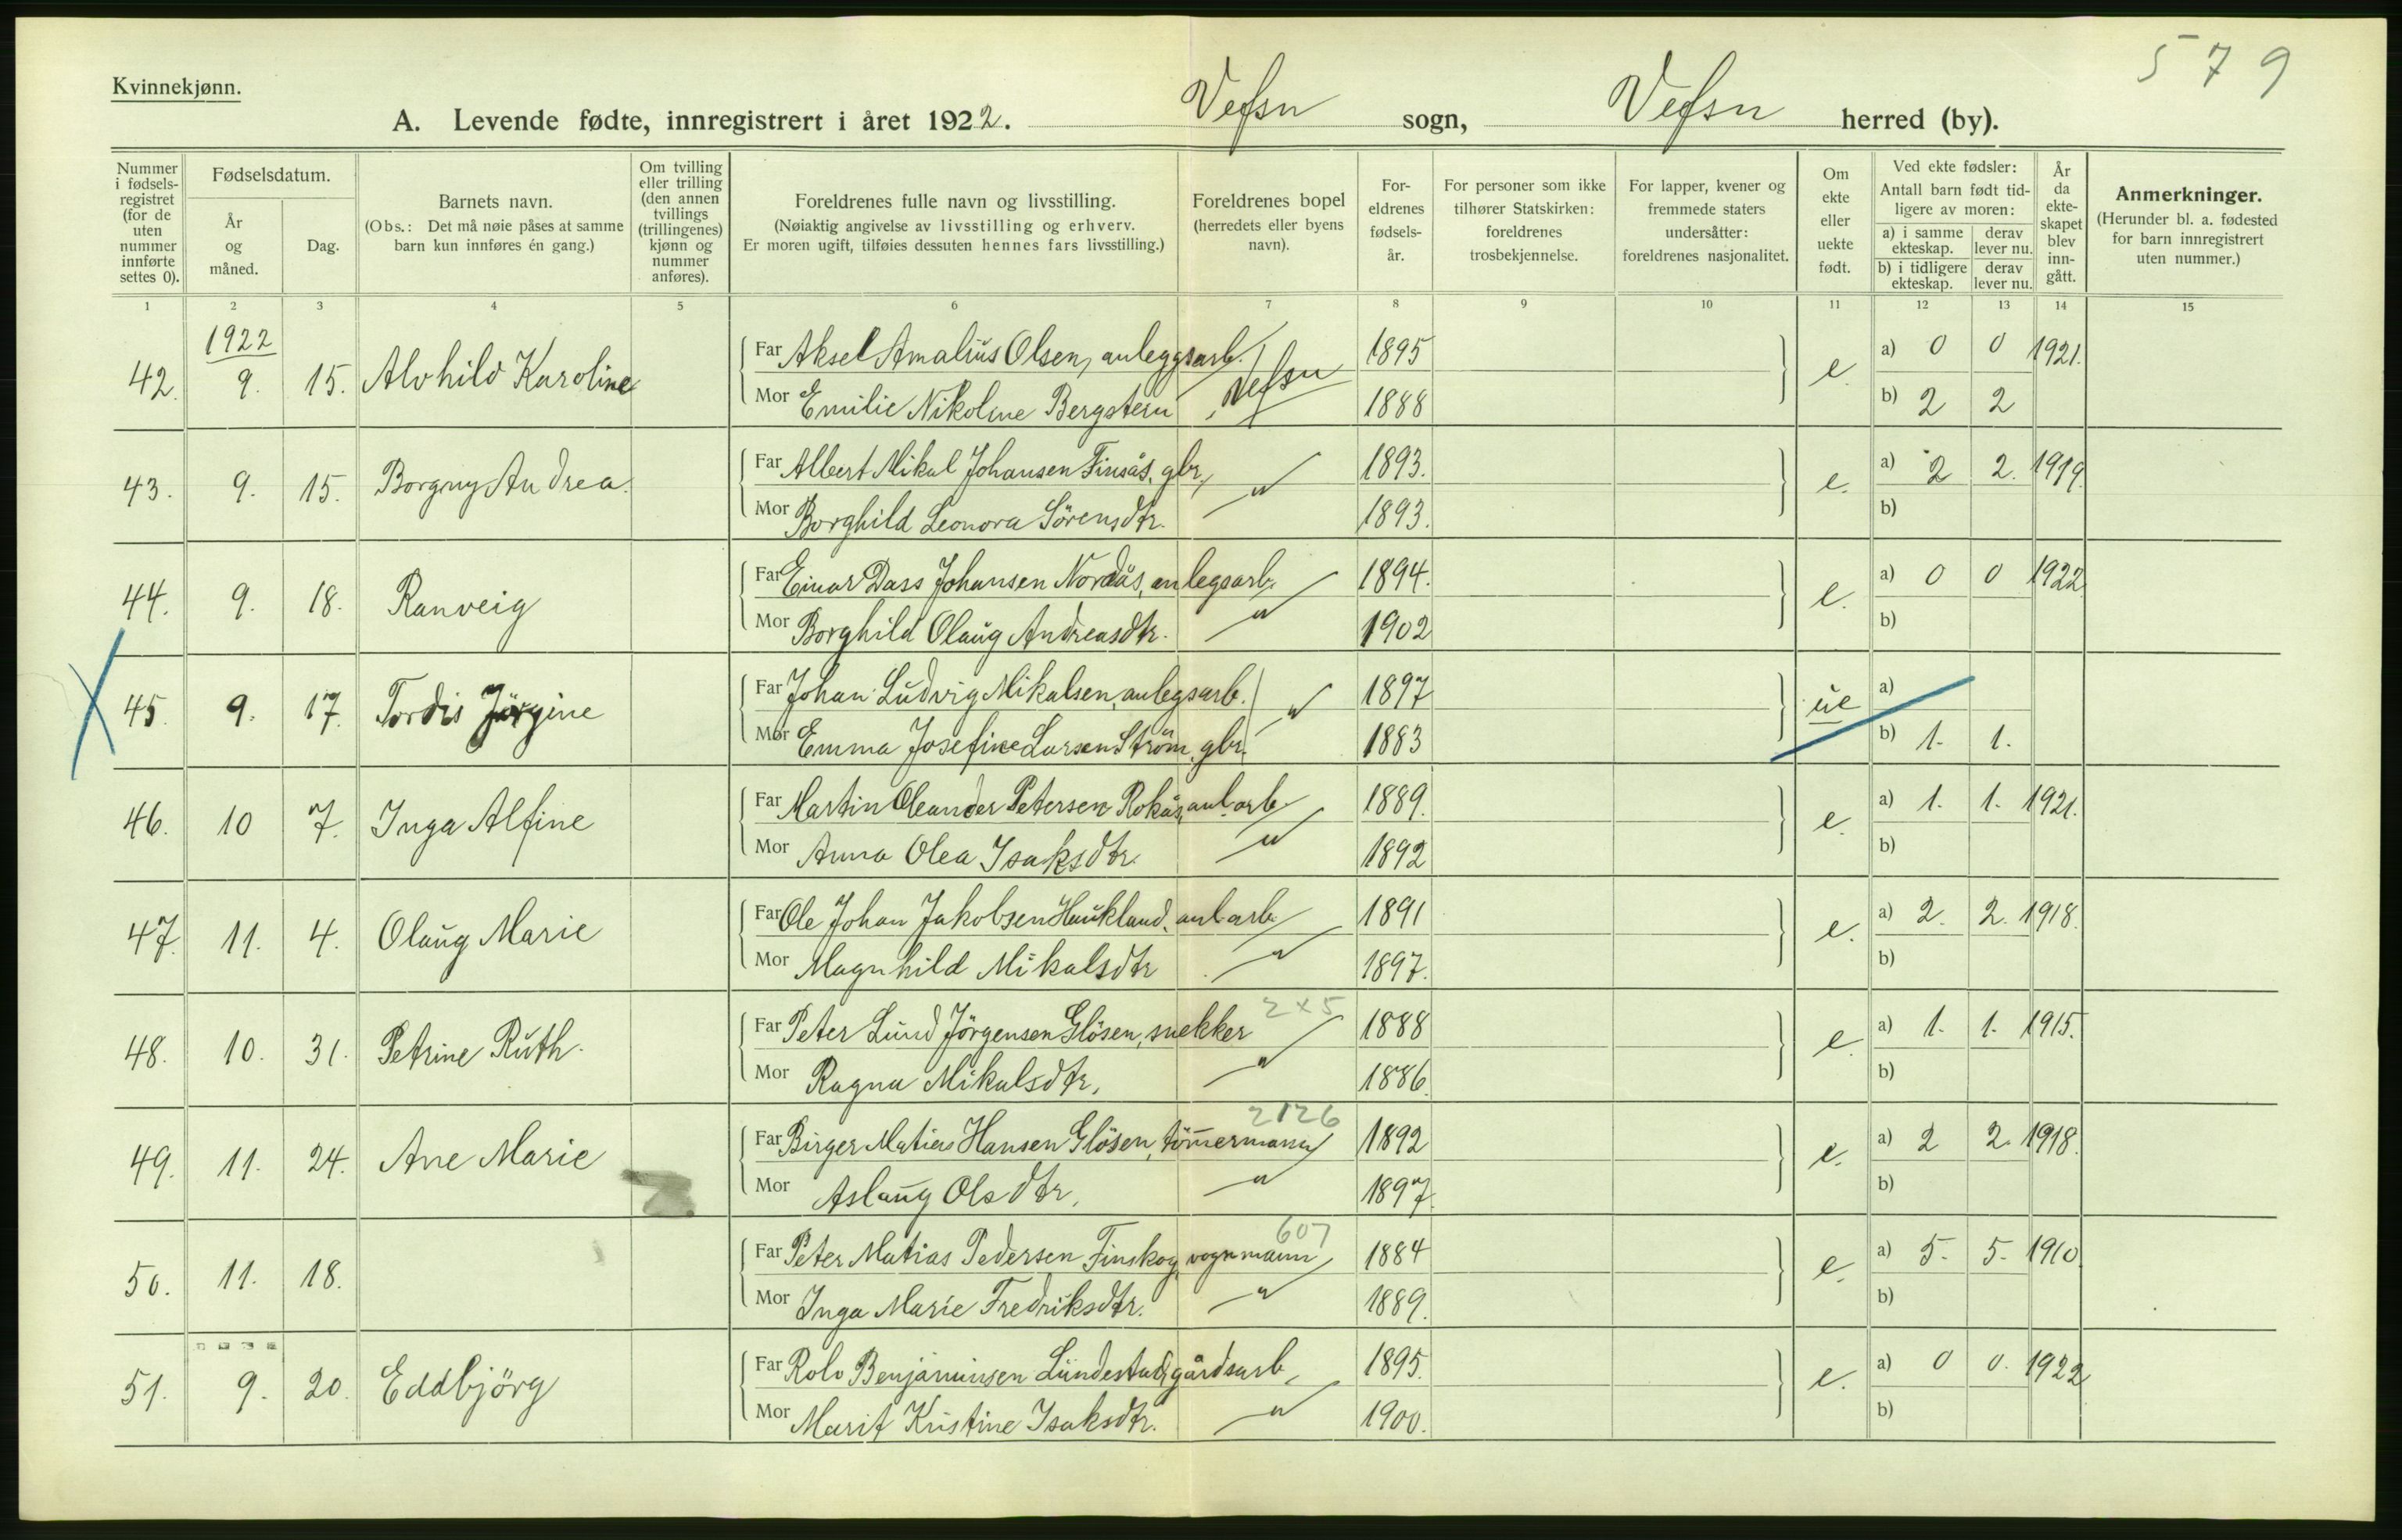 579
Kvinnekjønn.
A. Levende fødte, innregistrert i året 1922. Vefsn sogn, Vefsn herred (by).
Nummer i fødsels-registret (for de uten nummer innførte settes 0).
Fødselsdatum.
År og måned.
Dag.
Barnets navn.
(Obs.: Det må nøie påses at samme barn kun innføres én gang.)
Om tvilling eller trilling (den annen tvillings (trillingenes) kjønn og nummer anføres).
Foreldrenes fulle navn og livsstilling.
(Nøiaktig angivelse av livsstilling og erhverv.
Er moren ugift, tilføies dessuten hennes fars livsstilling.)
Foreldrenes bopel
(herredets eller byens navn).
For-eldrenes fødsels-år.
For personer som ikke tilhører Statskirken: foreldrenes trosbekjennelse.
For lapper, kvener og fremmede staters undersåtter: foreldrenes nasjonalitet.
Om ekte eller uekte født.
Ved ekte fødsler:
Antall barn født tid-ligere av moren:
a) i samme ekteskap. derav lever nu.
b) i tidligere ekteskap. derav lever nu.
År da ekte-skapet blev inn-gått.
Anmerkninger.
(Herunder bl. a. fødested for barn innregistrert uten nummer.)
1 2 3 4 5 6 7 8 9 10 11 12 13 14 15
1922
42. 9. 15. Alvhild Karoline Far Aksel Amalius Olsen, anleggsarb. Vefsn 1895 e. a) 0 0 1921.
Mor Emilie Nikoline Bergstern 1888 b) 2 2
43. 9. 15. Borgny Andrea. Far Albert Mikal Johansen Finsås, gbr, 1893. e. a) 2 2. 1919.
Mor Borghild Leonora Sörensdtr. " 1893. b)
44. 9. 18. Ranveig Far Einar Dass Johansen Nordås, anlegsarb. 1894. e. a) 0 0 1922
Mor Borghild Olaug Andreasdtr. " 1902 b)
45. 9. 17. Tordis Jörgine Far Johan Ludvig Mikalsen, anlegsarb. " 1897 ue a)
Mor Emma Josefine Larsen Ström, gbr. 1883 b) 1. 1.
46. 10 7. Inga Alfine Far Martin Oleander Petersen Rokås, anl.arb. 1889. e. a) 1. 1. 1921.
Mor Anna Olea Isaksdtr. " 1892 b)
47. 11. 4. Olaug Marie Far Ole Johan Jakobsen Haukland, anl.arb. 1891 e. a) 2. 2. 1918.
Mor Magnhild Mikalsdtr " 1897. b)
2x5
48. 10. 31. Petrine Ruth. Far Peter Lund Jörgensen Glösen, snekker 1888 e. a) 1. 1. 1915.
Mor Ragna Mikalsdtr, " 1886. b)
2126
49. 11. 24. Ane Marie Far Birger Matias Hansen Glösen, tömmermann 1892 e. a) 2 2. 1918.
Mor Aslaug Olsdtr, " 1897. b)
607
50. 11. 18. Far Peter Matias Pedersen Finskog, vognmann 1884 e. a) 5. 5. 1910
Mor Inga Marie Fredriksdtr. " 1889. b)
51. 9. 20. Eddbjörg Far Rolv Benjaminsen Lundestad, gårdsarb, 1895. e. a) 0 0. 1922
Mor Marit Kristine Isaksdtr. " 1900. b)